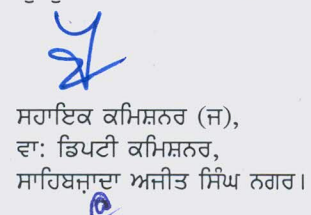 ਸਹਾਇਕ ਕਮਿਸ਼ਨਰ (ਜ),
ਵਾ: ਡਿਪਟੀ ਕਮਿਸ਼ਨਰ,
ਸਾਹਿਬਜ਼ਾਦਾ ਅਜੀਤ ਸਿੰਘ ਨਗਰ।